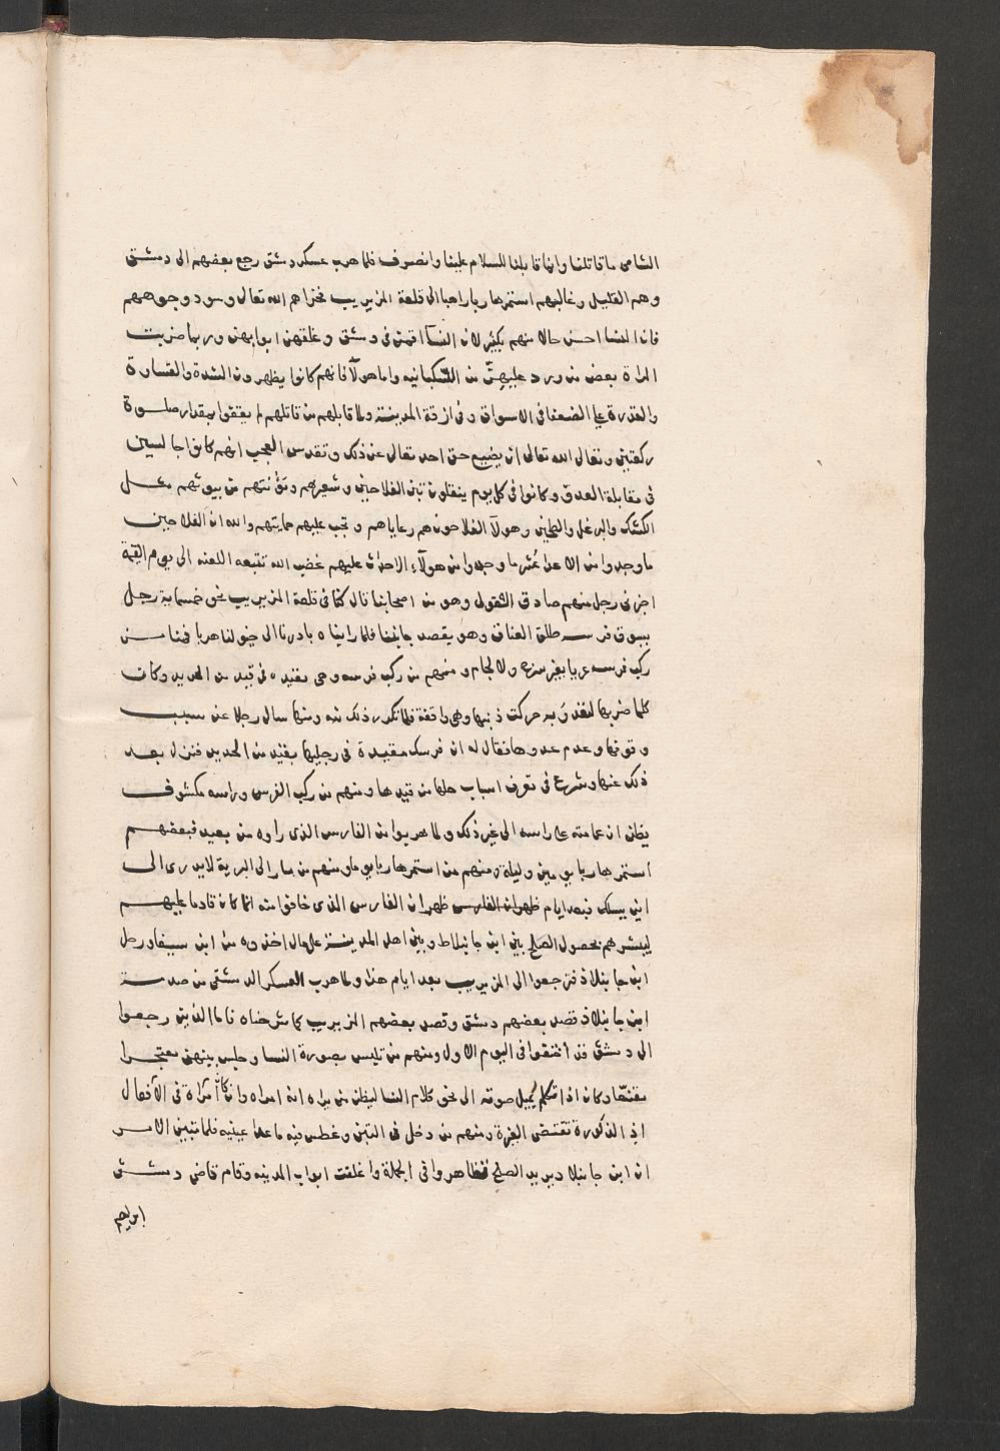 الشامى ما قاتلنا وانما قابلنا للسلام علينا وانصرف فلما هرب عسكر دمشق رجع بعضهم الى دمشق
وهم القليل وغالبهم استمر هاربا راهبا الى قلعة المزيريب فجزاهم الله تعالى وسود وجوههم
فان النسا احسن حالا منهم بكثير لان النسآ اقمن فى دمشق وغلقهن ابوابهن وربما ضربت
المراة بعض من ورد عليهنّ من السّكبانيه واما هولآ فانهم كانوا يظهرون الشدة والقساوة
والقدرة على الضعفا فى الاسواق وفى ازقة المدينة ولما قابلهم من قاتلهم لم يقفوا بمقدار صلوة
ركعتين وتعالى الله تعالى ان يضيع حق احد تعالى عن ذلك وتقدس العجب انهم كانوا جالسين
فى مقابلة العدو وكانوا فى كل يوم ينقلون تبن الفلاحين وشعيرهم ومؤنتهم من بيوتهم مثل
الكشك والبرغل والطحين وهولآ الفلاحون هم رعاياهم وتجب عليهم حمايتهم والله ان الفلاحين
ما وجدوا من الاعدا عُشر ما وجدوا من هولآء الاحداث عليهم غضب الله تتبعه اللعنه الى يوم القيمة
اخبرنى رجل منهم صادق القول وهو من اصحابنا قال كنا فى قلعة المزيريب نحو خمسماية رجل
يسوق فرسه طلق العنان وهو يقصد جانبنا فلما رايناه بادرنا الى خيولنا هربا فمنا من
ركب فرسه عريا بغير سرج ولا لجام ومنهم من ركب فرسه وهى مقيده فى قيد من الحديد وكانت
كلما ضربها لتعدوَ به حركت ذنبها وهى واقفة فلما تكرر ذلك منه ومنها سال رجلا عن سبب
وقوفها وعدم عدوها فقال له ان فرسك مقيدة فى رجليها بقيد من الحديد فنزل بعد
ذلك عنها وشرع فى تعرف اسباب حلها من قيدها ومنهم من ركب الفرس وراسه مكشوف
يظن ان عمامته على راسه الى غير ذلك ولما هربوا من الفارس الذى راوه من بعيد فبعضهم
استمر هاربا يومين وليلة ومنهم من استمر هاربا يوما ومنهم من سار الى البرية لا يدرى الى
اين يسلك فبعد ايام ظهر ان الفارس ظهر ان الفارس الذى خافوا منه انما كان قادما عليهم
ليبشرهم بحصول الصلح بين ابن جانبلاط وبين اهل المدينة على مال اخذوه من ابن سيفا ورحل
ابن جانبلاذ فرجعوا الى المزيريب بعد ايام هذا ولما هرب العسكر الدمشقى من صدمة
ابن جانبلاذ قصد بعضهم دمشق وقصد بعضهم المزيريب كما شرحناه فاما الذين رجعوا
الى دمشق قد اختفوا فى اليوم الاول ومنهم من تلبس بصورة النسا وجلس بينهن معتجرا
مقنعًا وكان اذا تكلم يُميل صوته الى نحو كلام النسا ليظن من يراه انه امراه وان كانَ امراة فى الآفعال
اذ الذكورة تقتضى الغيرة ومنهم من دخل فى التبن وغطس فيه ما عدا عينيه فلما تبين الامر
ان ابن جانبلاد يريد الصلح تظاهروا فى الجملة واغلقت ابواب المدينه وقام قاضى دمشق
ابرهيم